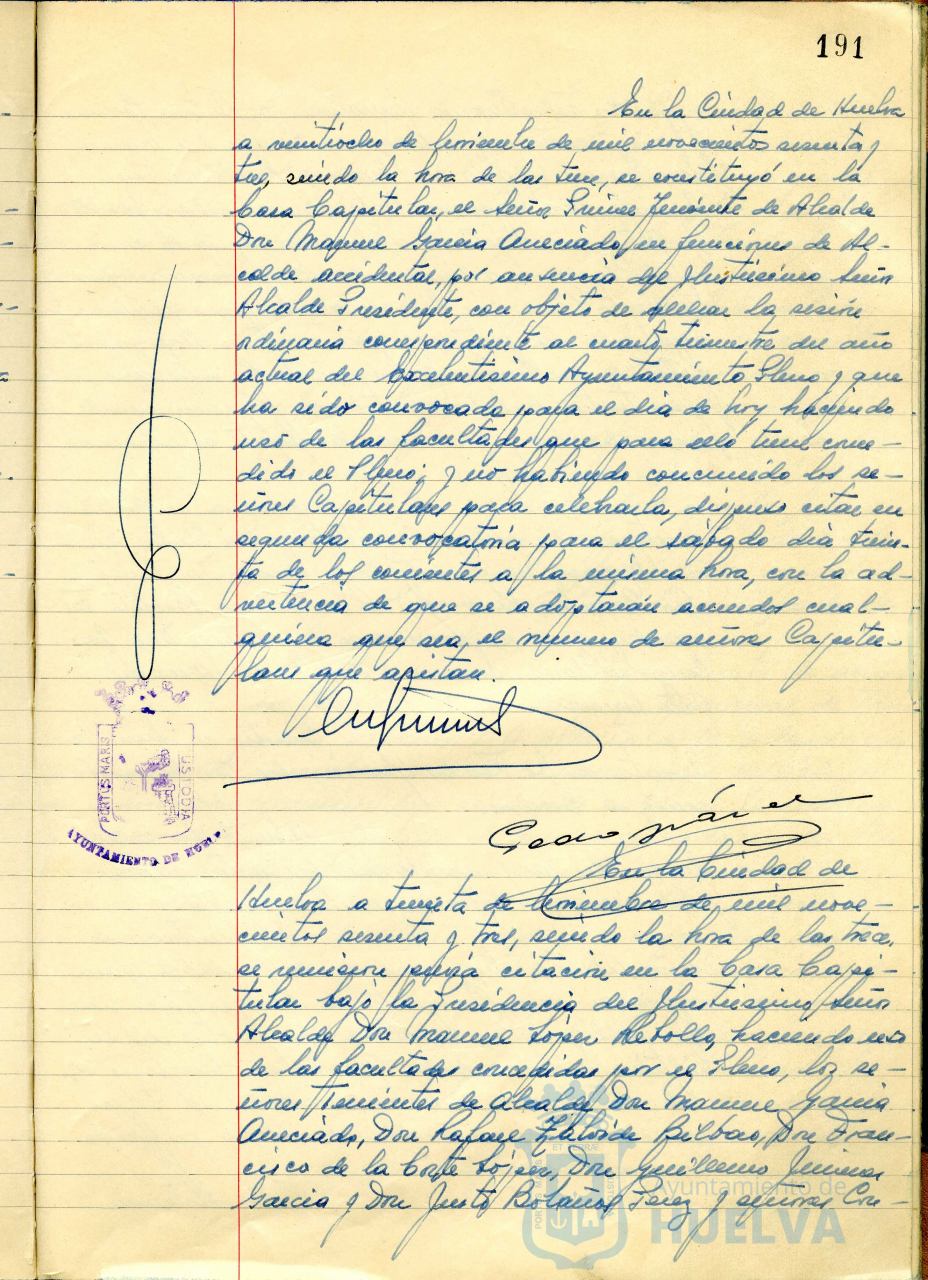 191
En la Ciudad de Huelva
a veintiocho de Noviembre de mil novecientos sesenta y
tres, siendo la hora de las trece, se constituyó en la
Casa Capitular, el Señor Primer Teniente de Alcalde
Don Manuel García Aneciado, en funciones de Al-
calde accidental, por ausencia del Ilustrísimo Señor
Alcalde Presidente, con objeto de celebrar la sesión
ordinaria correspondiente al cuarto trimestre del año
actual del Excelentísimo Ayuntamiento Pleno y que
ha sido convocada para el día de hoy haciendo
uso de las facultades que para ello tiene conce-
dido el Pleno; y no habiendo concurrido los se-
ñores Capitulares para celebrarla, dispuso citar en
segunda convocatoria para el sábado día trein-
ta de los corrientes a la misma hora, con la ad-
vertencia de que se adoptarán acuerdos cual-
quiera que sea el número de señores Capitu-
lares que asistan.
PORTUS MARIS
USTODIA
AYUNTAMIENTO DE HUELVA
En la Ciudad de
Huelva a treinta de Noviembre de mil nove-
cientos sesenta y tres, siendo la hora de las trece,
se reunieron previa citación en la Casa Capi-
tular bajo la Presidencia del Ilustrísimo Señor
Alcalde Don Manuel López Rebollo, haciendo uso
de las facultades concedidas por el Pleno, los se-
ñores Tenientes de Alcalde Don Manuel García
Aneciado, Don Rafael Zalvide Bilbao, Don Fran-
cisco de la Corte López, Don Guillermo Jimenez
García y Don Justo Bolaños Perez y señores Con-
Ayuntamiento de
HUELVA